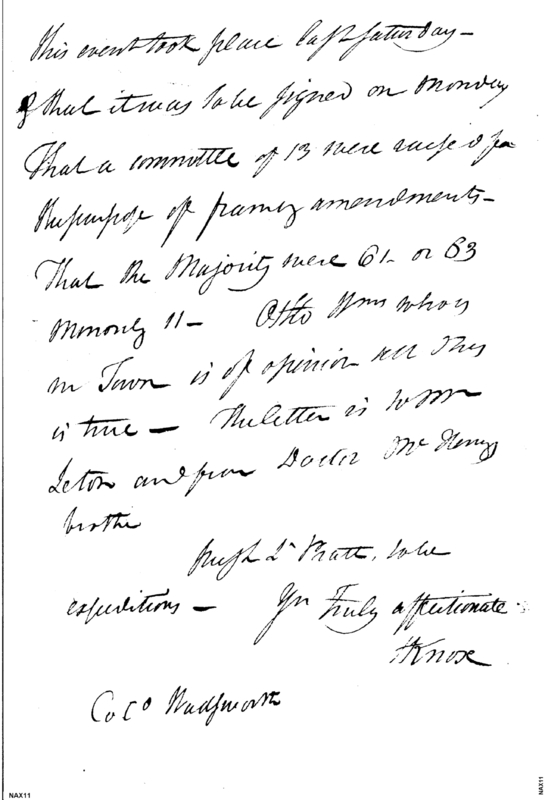 This event took place last Saturday —
& that it was to be signed on Monday
That a committe of 13 were raised for
the purpose of framing amendments —
That the Majority were 61 or 63
Minority 11 — Otho Wms who is
in Town is of opinion all this
is true — The letter is to Mr
Seton and from Doctor McHenrys
brother
Push Pratt, to be
expeditious — Yr Truly affectionate
HKnox
Colo Wadsworth
NAX11
NAX11